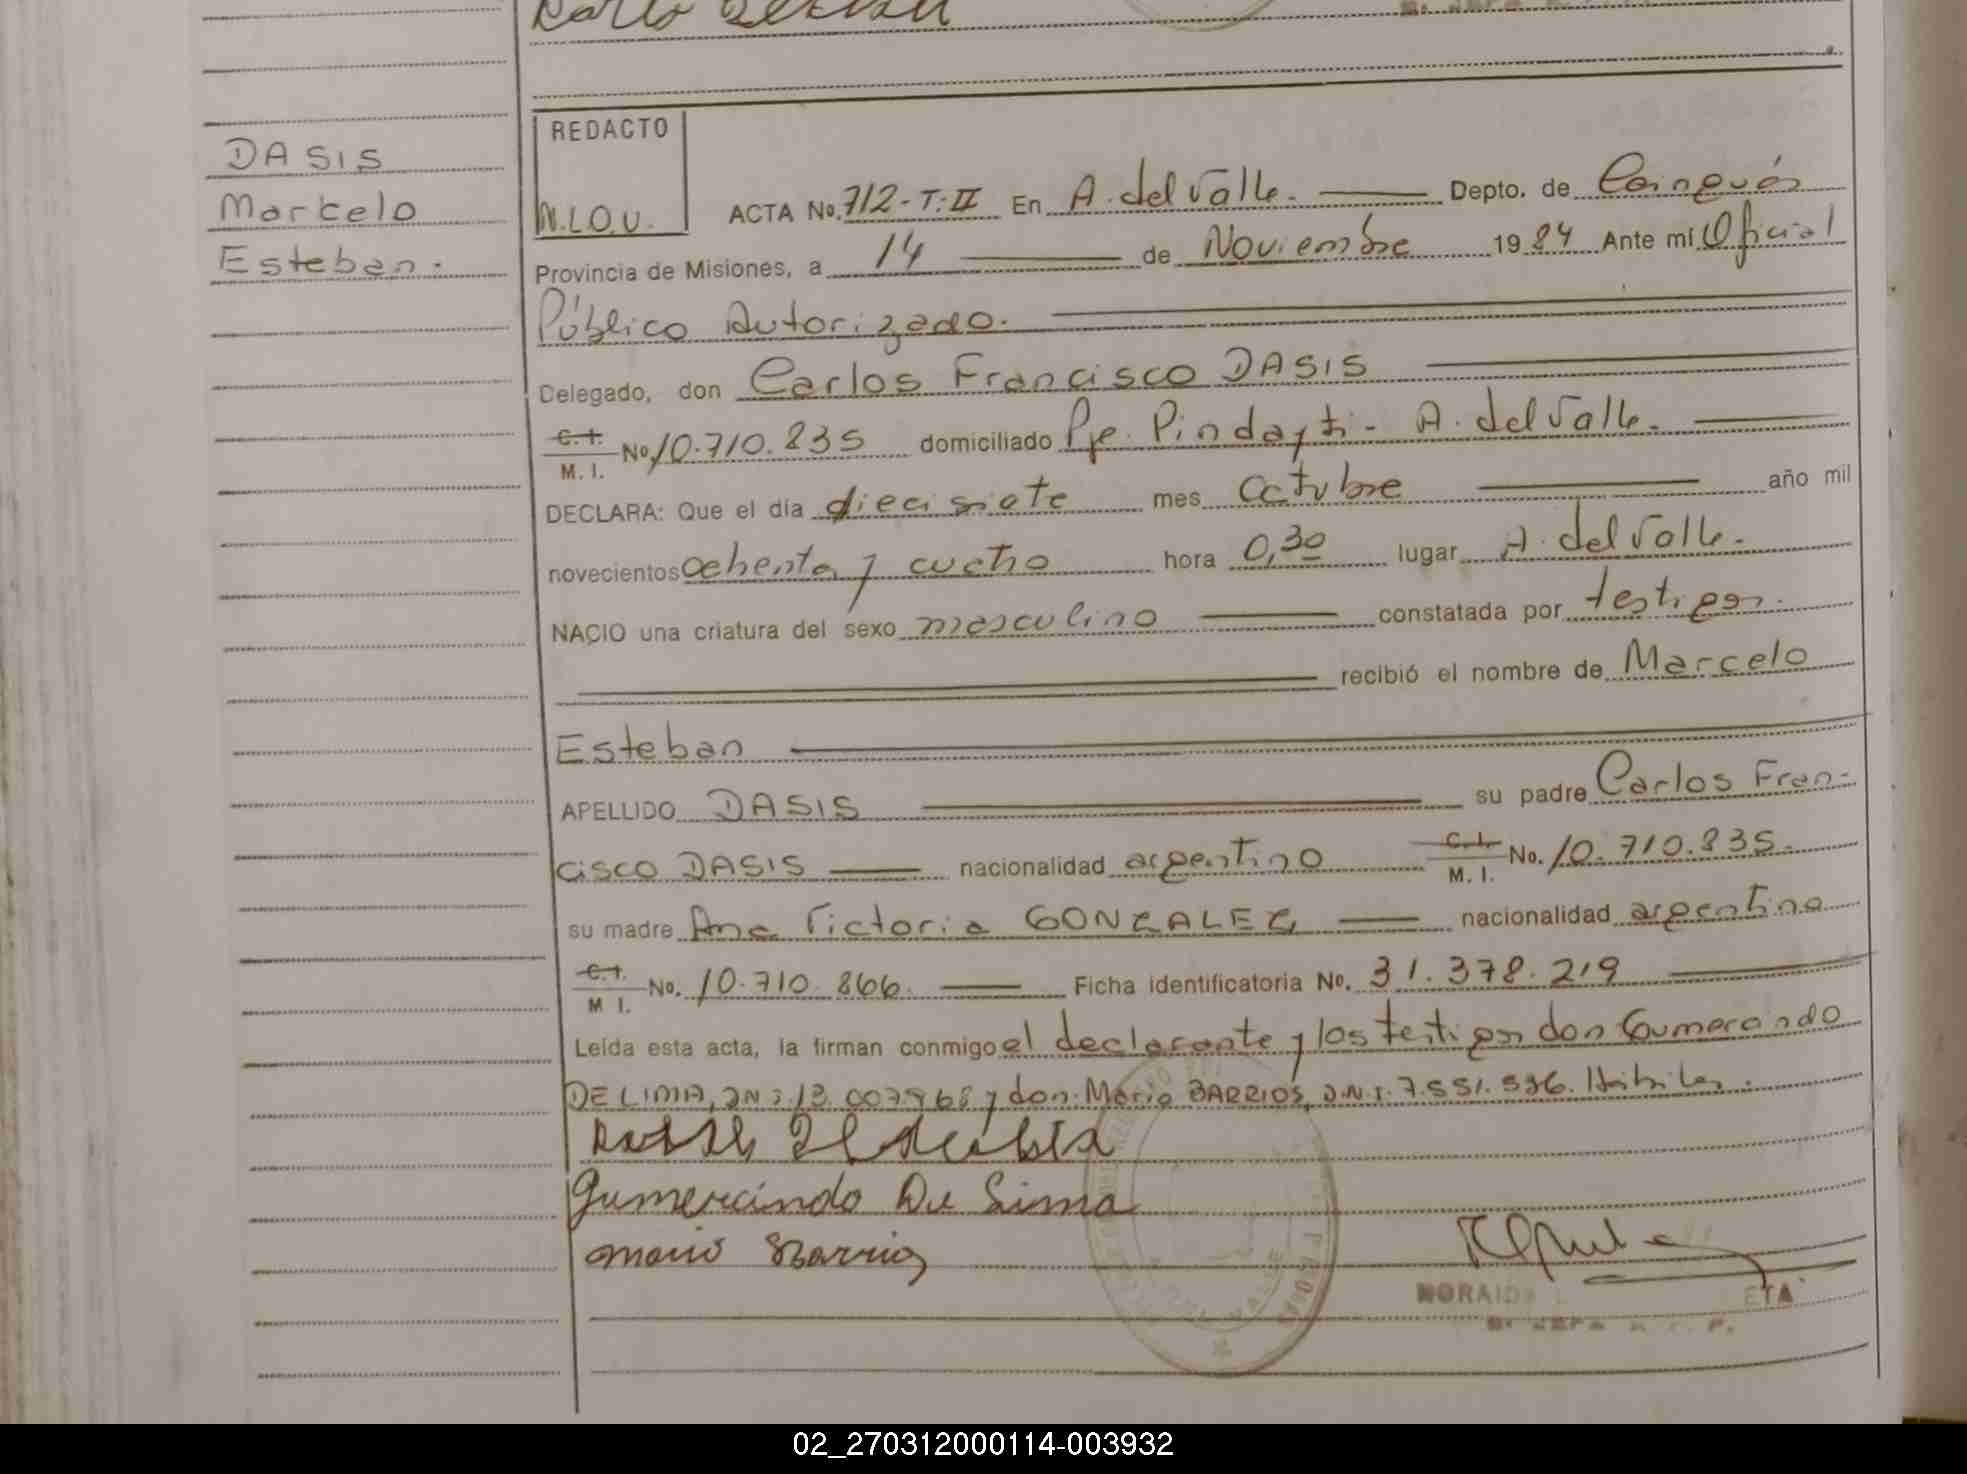 DASIS
Marcelo
Esteban.
REDACTO
N.L.O.V.
ACTA No. 712-T:II En A. del Valle. Depto. de Cainguás
Provincia de Misiones, a 14 de Noviembre 1984 Ante mí Oficial
Público Autorizado.
Delegado, don Carlos Francisco DASIS
C.I. M. I. No 10.710.835 domiciliado Pje. Pindayti - A. del Valle.
DECLARA: Que el día diecisiete mes Octubre año mil
novecientos ochenta y cuatro hora 0,30 lugar A. del Valle.
NACIO una criatura del sexo masculino constatada por testigos.
recibió el nombre de Marcelo
Esteban
APELLIDO DASIS su padre Carlos Fran-
cisco DASIS nacionalidad argentino C.I. M. I. No. 10.710.835.
su madre Ana Victoria GONZALEZ nacionalidad argentina
C.I. M I. No. 10.710.866. Ficha identificatoria No. 31.378.219
Leída esta acta, la firman conmigo el declarante y los testigos don Gumercindo
DE LIMA, DNI. 13.007.968 y don Mario BARRIOS, D.N.I. 7.551.536. Hábiles.
Gumercindo De Lima
Mario Barrios
NORAID ETA
02_270312000114-003932